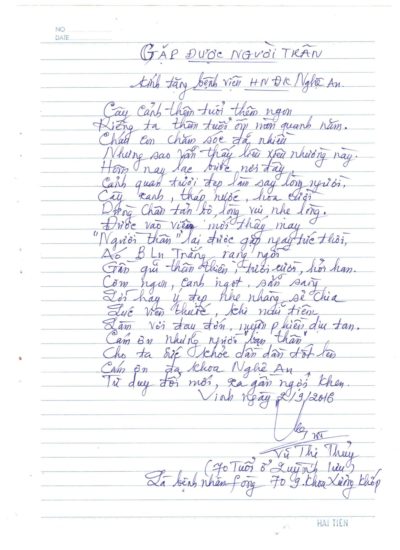 NO
DATE
GẶP ĐƯỢC NGƯỜI THÂN
Kính tặng bệnh viện HNĐK Nghệ An.
Cây cảnh thêm tuổi thêm ngon
Riêng ta thêm tuổi ốm mòn quanh năm.
Cháu con chăm sóc đã nhiều
Nhưng sao vẫn thấy liêu xiêu nhường này.
Hôm nay lạc bước nơi đây
Cảnh quan tươi đẹp làm say lòng người.
Cây xanh, tháp nước, hoa cười
Dừng chân tản bộ lòng vui nhẹ lòng.
Được vào viện mới thấy may
"Người thân" lại được gặp ngay tức thời,
Áo BLu Trắng rạng ngời
Gần gũi thân thiện, tươi cười, hỏi han.
Cơm ngon, canh ngọt, sẵn sàng
Lời hay ý đẹp nhẹ nhàng sẻ chia
Lúc viên thuốc, khi mũi tiêm
Làm vơi đau đớn, muộn phiền dịu tan.
Cám ơn những người "bạn thân"
Cho ta sức khỏe dần dần tốt lên
Cám ơn đa khoa Nghệ An
Tư duy đổi mới, xa gần ngợi khen.
Vinh ngày 2/9/2016
Vũ Thị Thủy
(70 Tuổi ở Quỳnh lưu)
Là bệnh nhân fòng 70 g. Khoa Xương Khớp
HẢI TIẾN